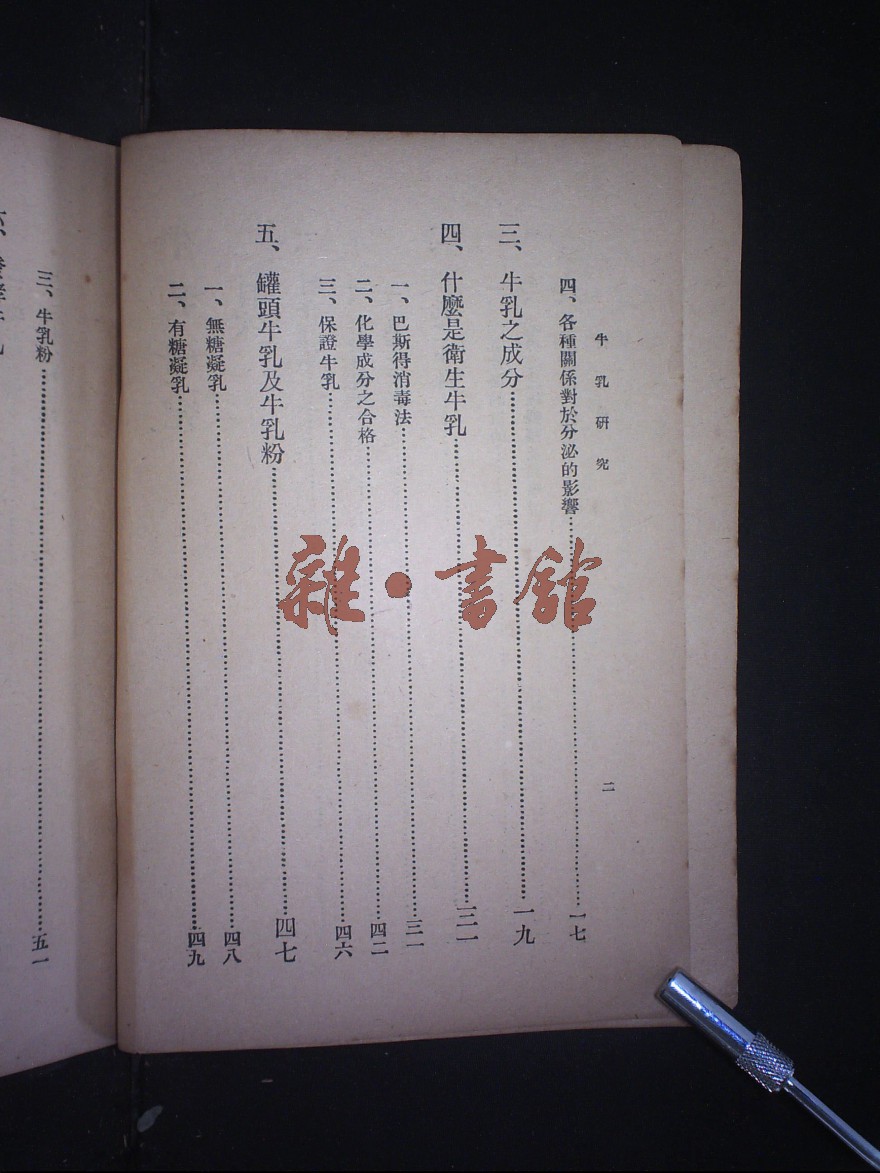 牛乳研究
二
四、各種關係對於分泌的影響……一七
三、牛乳之成分……一九
四、什麼是衛生牛乳……三一
一、巴斯得消毒法……三一
二、化學成分之合格……四二
三、保證牛乳……四六
五、罐頭牛乳及牛乳粉……四七
一、無糖凝乳……四八
二、有糖凝乳……四九
三、牛乳粉……五一
雜•書館